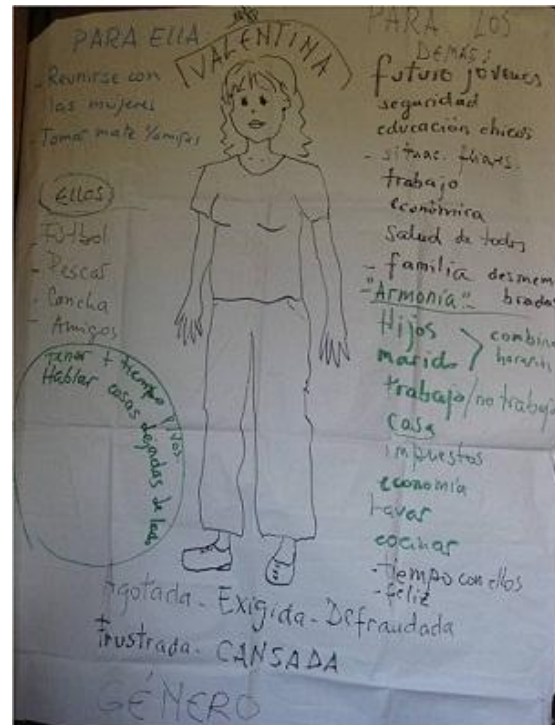 PARA ELLA:
- Reunirse con
las mujeres
- Tomar mate
Ellos
- Fútbol
- Pescar
- Cancha
- Amigos
Tener + tiempo
Hablar cosas dejadas de lado
VALENTINA
PARA LOS
DEMÁS:
futuro jóvenes
seguridad
educación chicos
- situac.
trabajo
económica
salud de todos
- familia desmem
bradas
- "Armonía" -
Hijos
marido
combinar
horarios
trabajo/no trabajo
casa
impuestos
economía
Lavar
cocinar
- tiempo con ellos
- feliz
Agotada - Exigida - Defraudada
Frustrada - CANSADA
GÉNERO